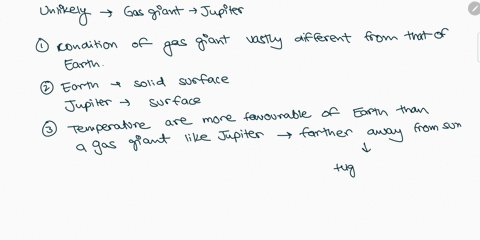 Unlikely → Gas giant → Jupiter
① condition of gas giant vastly different from that of
Earth.
② Earth → solid surface
Jupiter → surface
③ Temperature are more favourable of Earth than
a gas giant like Jupiter → farther away from sun
↓
tug